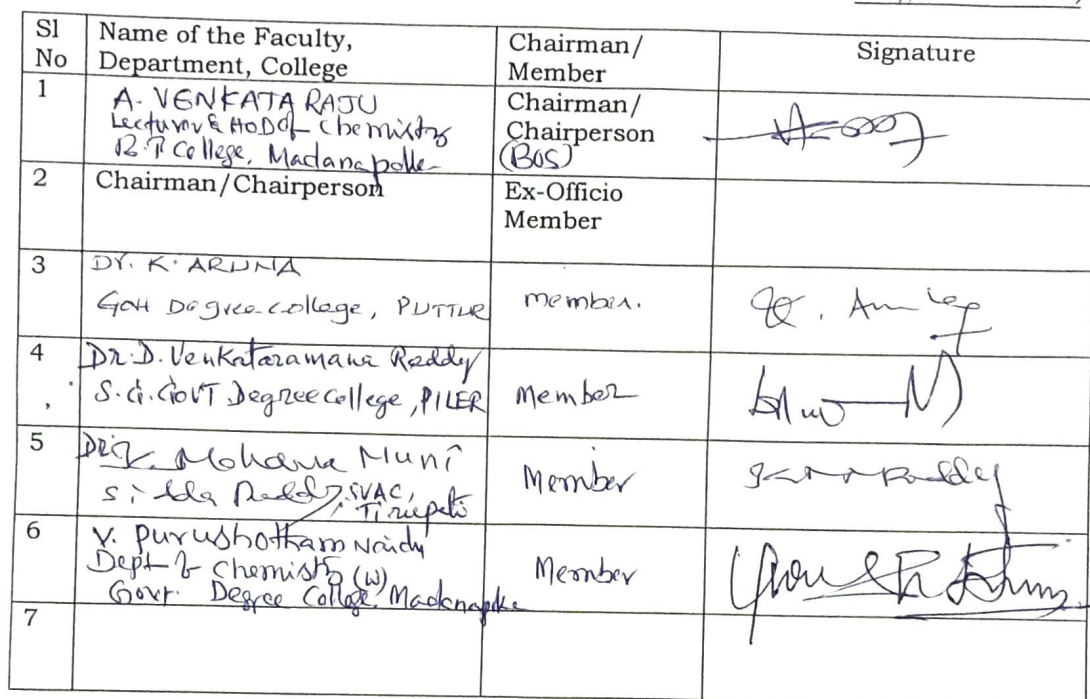 Sl No
Name of the Faculty, Department, College
Chairman/ Member
Signature
1
A. VENKATA RAJU
Lecturer & HOD of Chemistry
B.T College, Madanapalle
Chairman/
Chairperson
(BOS)
2
Chairman/Chairperson
Ex-Officio
Member
3
Dr. K. ARUNA
Govt Degree College, PUTTUR
member.
4
Dr. D. Venkataramana Reddy
S.G. GOVT Degree College, PILER
Member
5
Dr. K. Mohana Muni
Sidda Reddy, SVAC,
Tirupati
Member
Reddy
6
V. Purushotham Naidu
Dept of Chemistry
Govt. Degree College (W) Madanapalle
Member
7